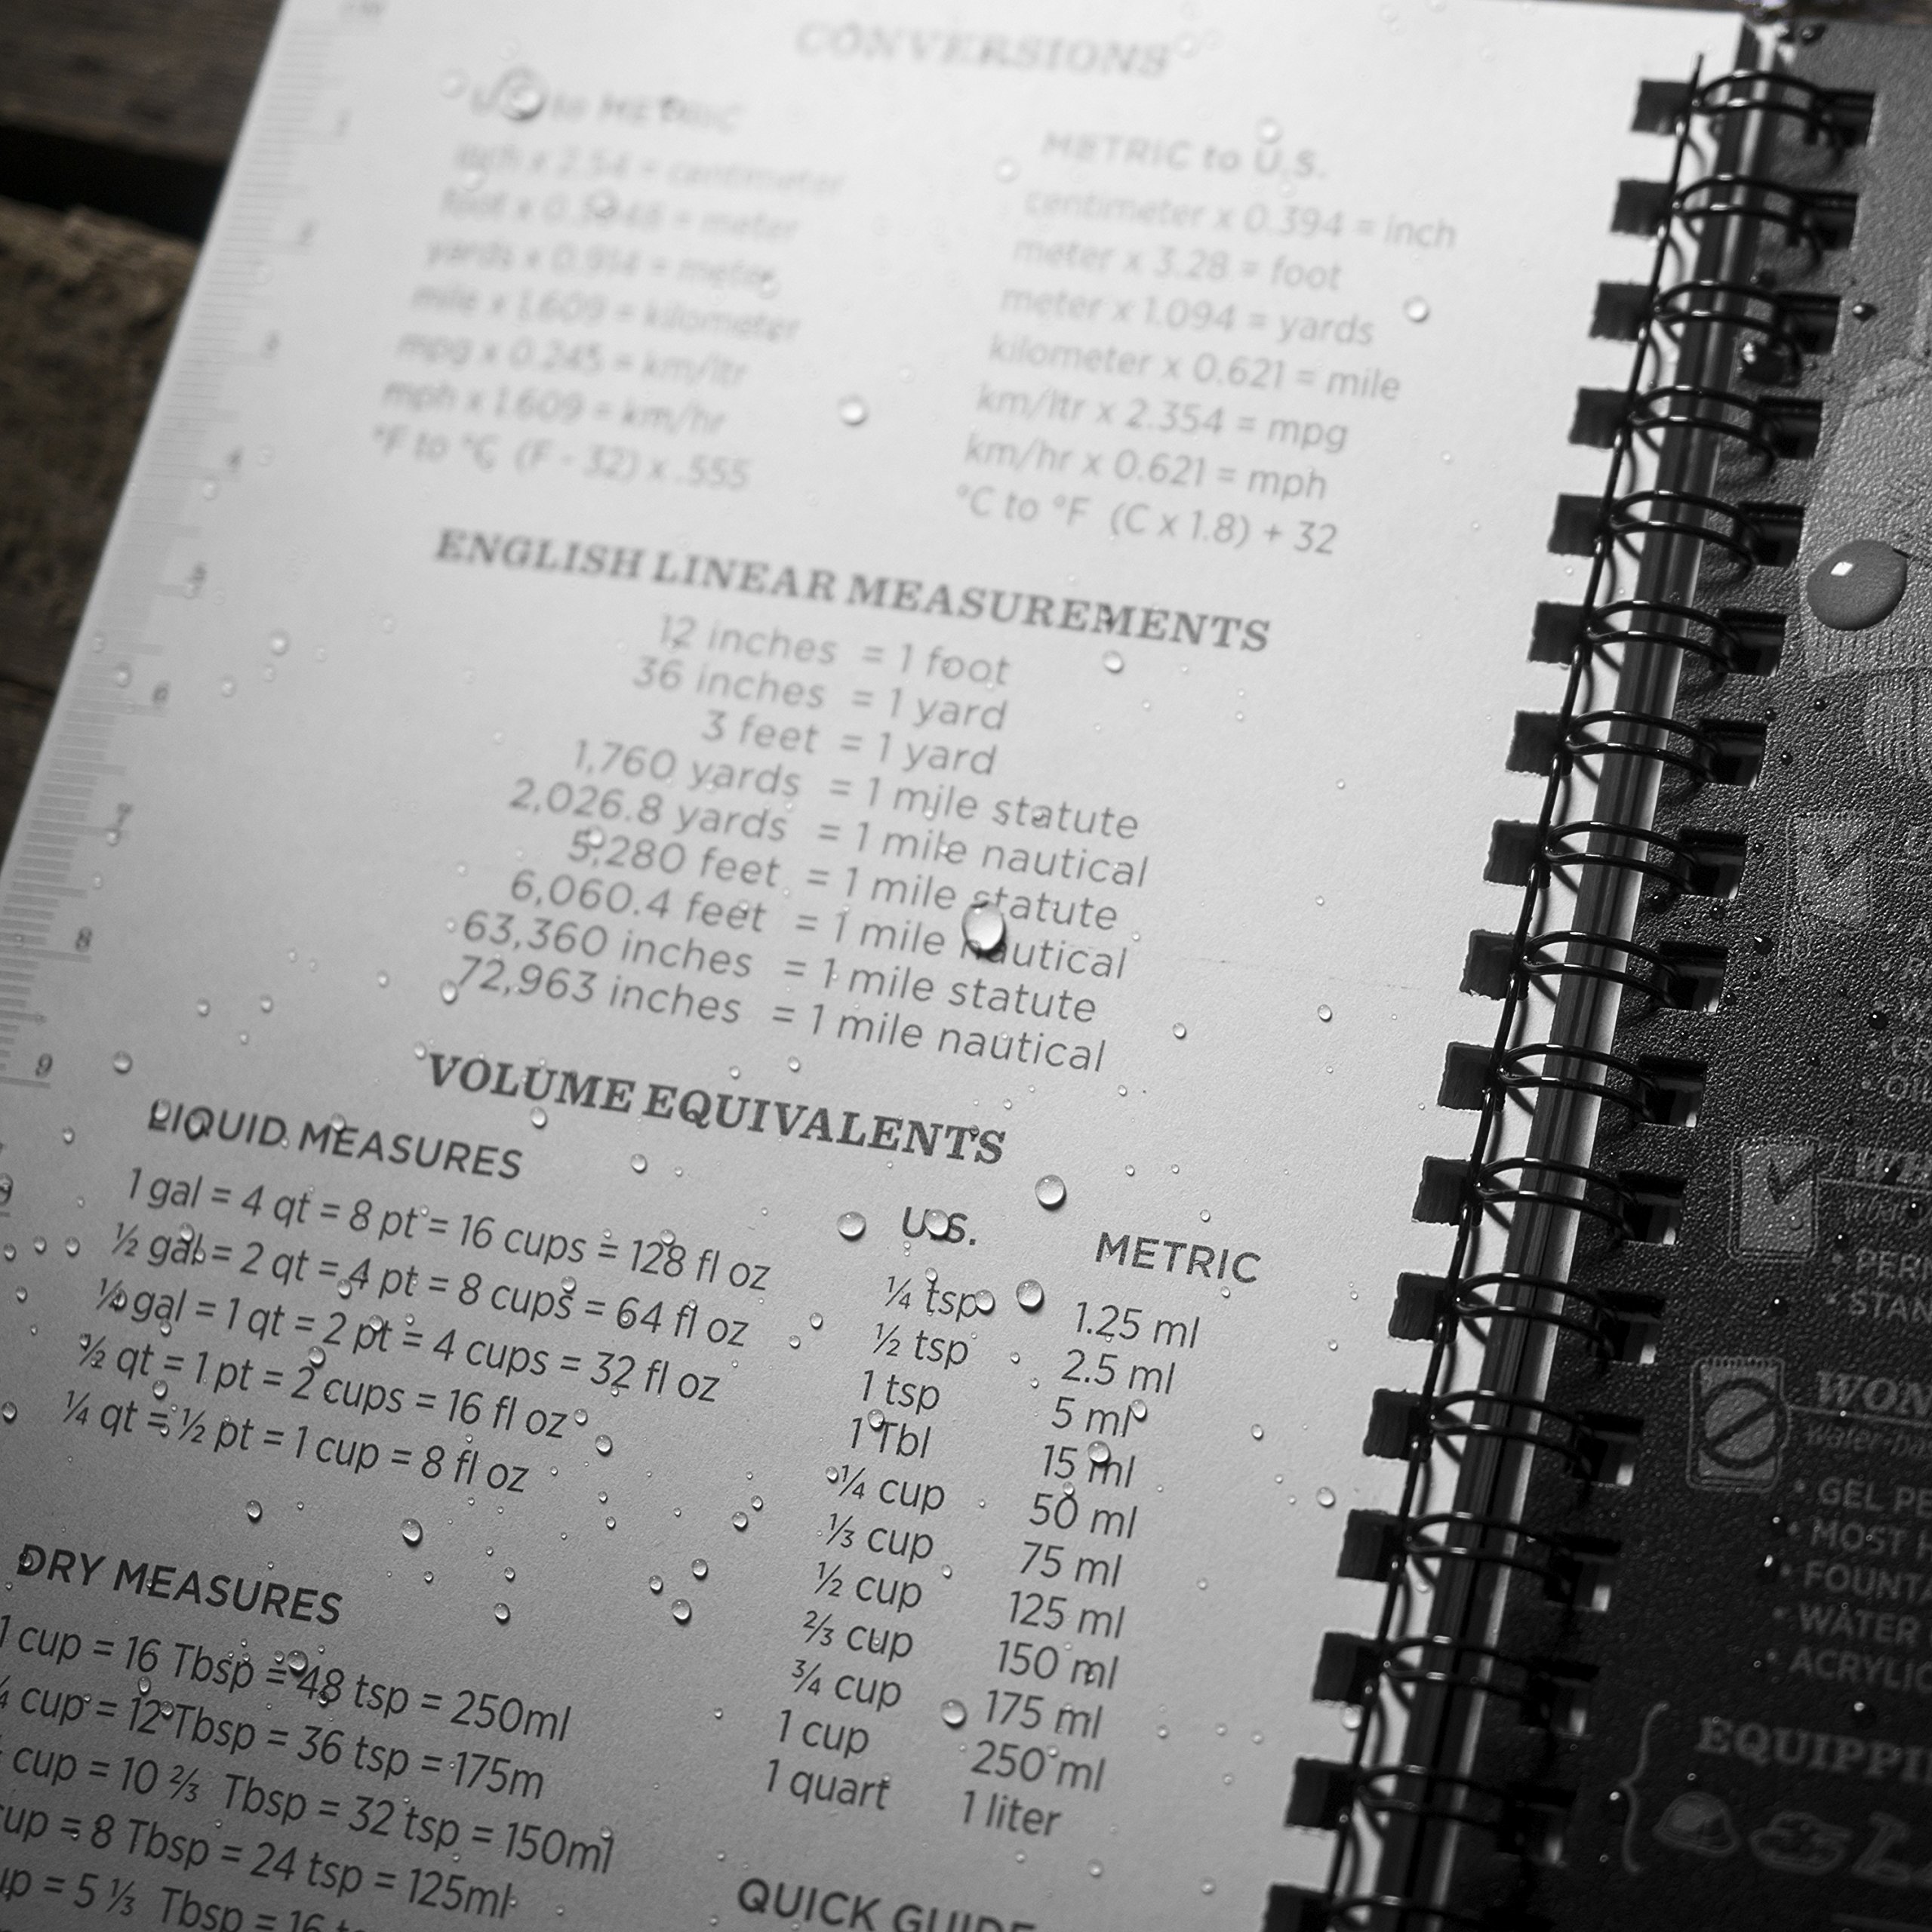 CONVERSIONS
U.S. to METRIC
inch x 2.54 = centimeter
foot x 0.3048 = meter
yards x 0.914 = meter
mile x 1.609 = kilometer
mpg x 0.245 = km/ltr
mph x 1.609 = km/hr
°F to °C (F - 32) x .555
METRIC to U.S.
centimeter x 0.394 = inch
meter x 3.28 = foot
meter x 1.094 = yards
kilometer x 0.621 = mile
km/ltr x 2.354 = mpg
km/hr x 0.621 = mph
°C to °F (C x 1.8) + 32
ENGLISH LINEAR MEASUREMENTS
12 inches = 1 foot
36 inches = 1 yard
3 feet = 1 yard
1,760 yards = 1 mile statute
2,026.8 yards = 1 mile nautical
5,280 feet = 1 mile statute
6,060.4 feet = 1 mile nautical
63,360 inches = 1 mile statute
72,963 inches = 1 mile nautical
VOLUME EQUIVALENTS
LIQUID MEASURES
1 gal = 4 qt = 8 pt = 16 cups = 128 fl oz
½ gal = 2 qt = 4 pt = 8 cups = 64 fl oz
¼ gal = 1 qt = 2 pt = 4 cups = 32 fl oz
½ qt = 1 pt = 2 cups = 16 fl oz
¼ qt = ½ pt = 1 cup = 8 fl oz
U.S. METRIC
¼ tsp 1.25 ml
½ tsp 2.5 ml
1 tsp 5 ml
1 Tbl 15 ml
¼ cup 50 ml
⅓ cup 75 ml
½ cup 125 ml
⅔ cup 150 ml
¾ cup 175 ml
1 cup 250 ml
1 quart 1 liter
DRY MEASURES
1 cup = 16 Tbsp = 48 tsp = 250ml
cup = 12 Tbsp = 36 tsp = 175m
cup = 10 ⅔ Tbsp = 32 tsp = 150ml
cup = 8 Tbsp = 24 tsp = 125ml
= 5 ⅓ Tbsp = 16
QUICK GUIDE
3
4
5
6
7
8
9
PER
STAN
WON
GEL PE
MOST
FOUNT
WATER
ACRYLIC
EQUIPPI